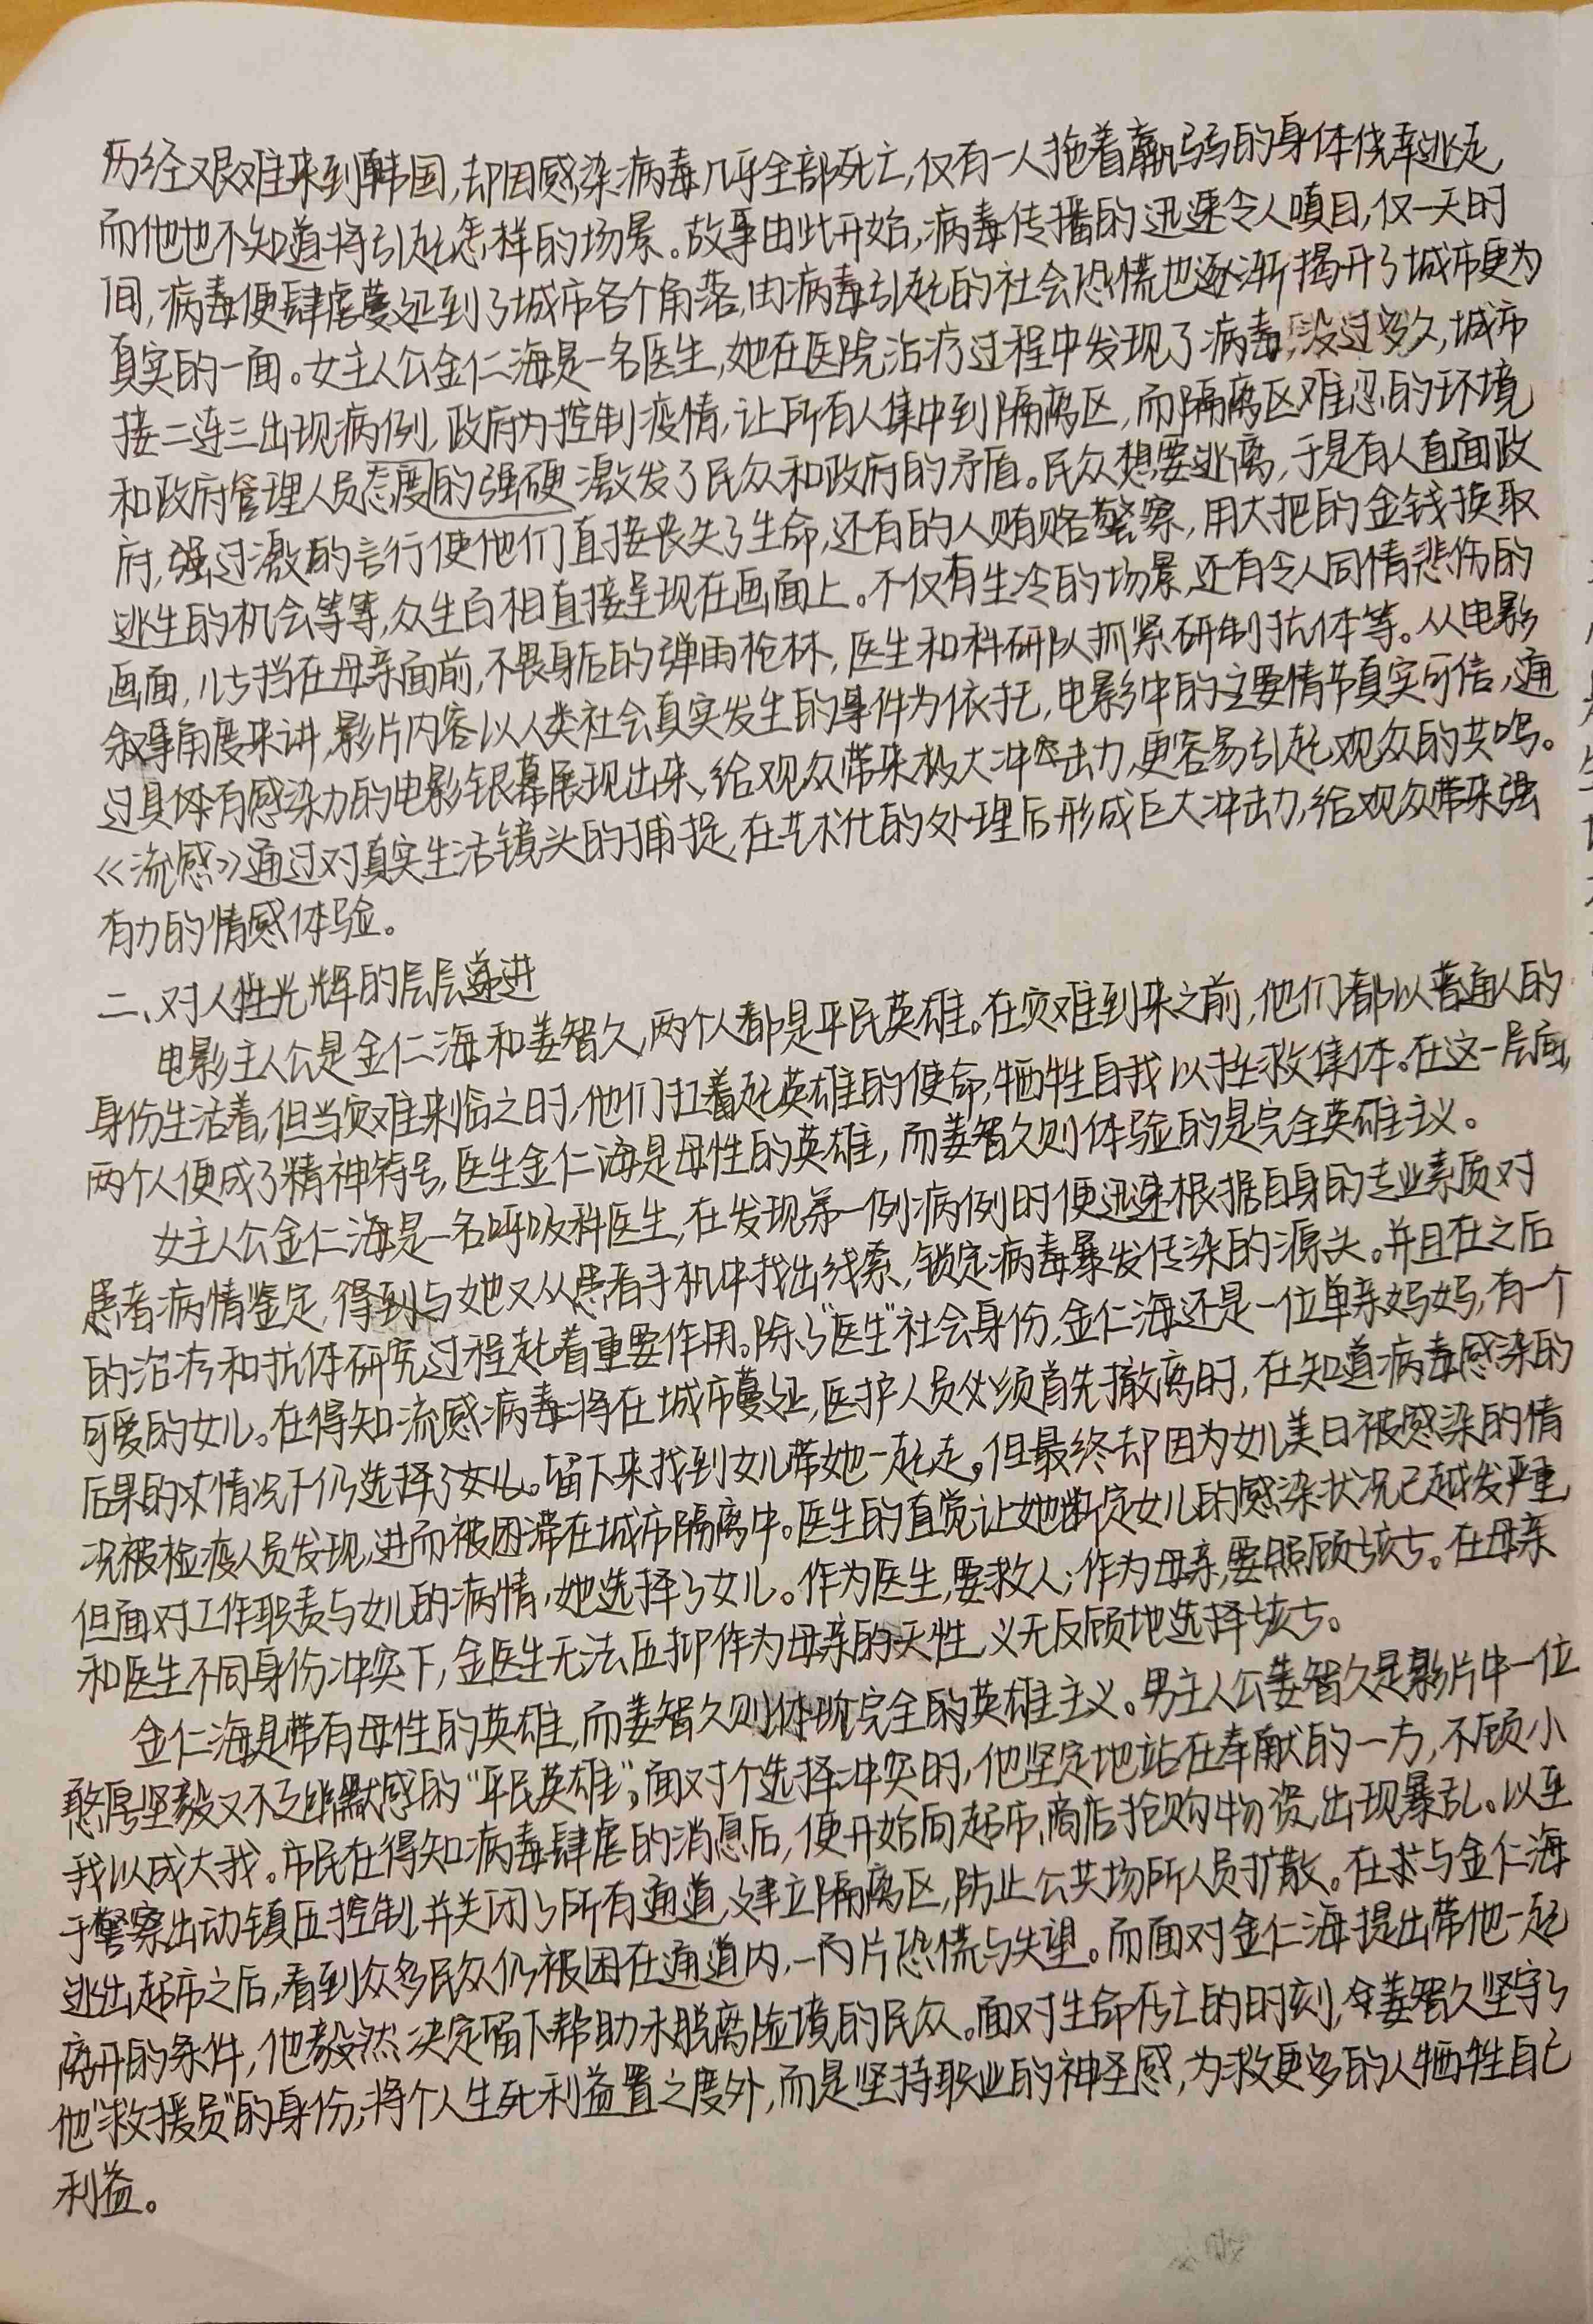 历经艰难来到韩国,却因感染病毒几乎全部死亡,仅有一人拖着羸弱的身体侥幸逃走
而他也不知道将引起怎样的场景。故事由此开始,病毒传播的迅速令人嗔目,仅一天时
间,病毒便肆虐蔓延到了城市各个角落,由病毒引起的社会恐慌也逐渐揭开了城市更为
真实的一面。女主人公金仁海是一名医生,她在医院治疗过程中发现了病毒,没过多久,城市
接二连三出现病例,政府为控制疫情,让所有人集中到隔离区,而隔离区难忍的环境
和政府管理人员态度的强硬激发了民众和政府的矛盾。民众想要逃离,于是有人直面政
府,强过激的言行使他们直接丧失了生命,还有的人贿赂警察,用大把的金钱换取
逃生的机会等等,众生百相直接呈现在画面上。不仅有生冷的场景,还有令人同情悲伤的
画面,儿女挡在母亲面前,不畏身后的弹雨枪林,医生和科研队抓紧研制抗体等。从电影
叙事角度来讲,影片内容以人类社会真实发生的事件为依托,电影中的主要情节真实可信,通
过具体有感染力的电影银幕展现出来,给观众带来极大冲击力,更容易引起观众的共鸣。
《流感》通过对真实生活镜头的捕捉,在艺术化的处理后形成巨大冲击力,给观众带来强
有力的情感体验。
二、对人性光辉的层层递进
电影主人公是金仁海和姜智久,两个人都是平民英雄。在灾难到来之前,他们都以普通人的
身份生活着,但当灾难来临之时,他们扛着起英雄的使命,牺牲自我以拯救集体。在这一层面,
两个人便成了精神符号,医生金仁海是母性的英雄,而姜智久则体验的是完全英雄主义。
女主人公金仁海是一名呼吸科医生,在发现第一例病例时便迅速根据自身的专业素质对
患者病情鉴定,得到与她又从患者手机中找出线索,锁定病毒暴发传染的源头。并且在之后
的治疗和抗体研究过程起着重要作用。除了“医生”社会身份,金仁海还是一位单亲妈妈,有一个
可爱的女儿。在得知流感病毒将在城市蔓延,医护人员必须首先撤离时,在知道病毒感染的
后果的情况下仍选择了女儿。留下来找到女儿带她一起走。但最终却因为女儿美日被感染的情
况被检疫人员发现,进而被困滞在城市隔离中。医生的直觉让她断定女儿的感染状况已越发严重,
但面对工作职责与女儿的病情,她选择了女儿。作为医生,要救人;作为母亲,要照顾孩子。在母亲
和医生不同身份冲突下,金医生无法压抑作为母亲的天性,义无反顾地选择孩子。
金仁海是带有母性的英雄,而姜智久则体现完全的英雄主义。男主人公姜智久是影片中一位
憨厚坚毅又不乏幽默感的“平民英雄”,面对个选择冲突时,他坚定地站在奉献的一方,不顾小
我以成大我。市民在得知病毒肆虐的消息后,便开始向超市,商店抢购物资,出现暴乱。以至
于警察出动镇压控制,并关闭了所有通道,建立隔离区,防止公共场所人员扩散。在与金仁海
逃出超市之后,看到众多民众仍被困在通道内,一片恐慌与失望。而面对金仁海提出带他一起
离开的条件,他毅然决定留下帮助未脱离险境的民众。面对生命存亡的时刻,姜智久坚守了
他“救援员”的身份,将个人生死利益置之度外,而是坚持职业的神圣感,为救更多的人牺牲自己
利益。